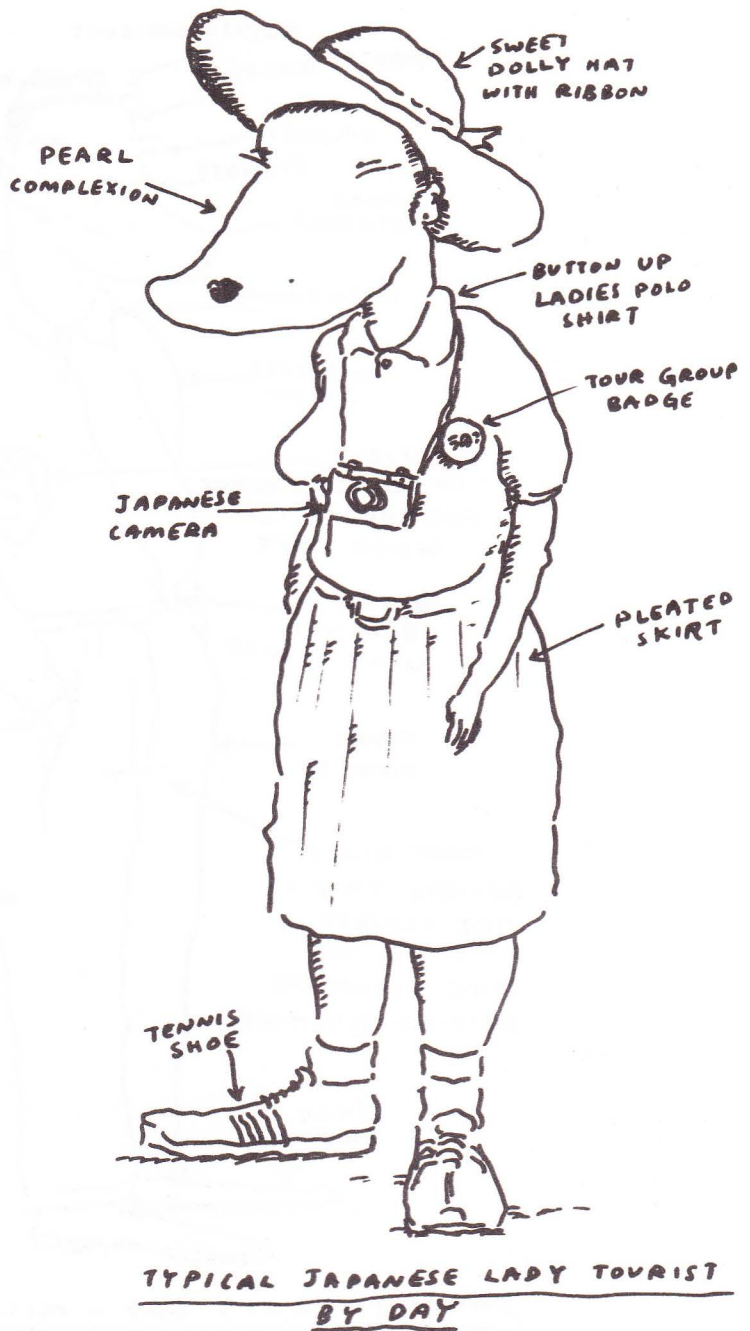 SWEET
DOLLY HAT
WITH RIBBON
PEARL
COMPLEXION
BUTTON UP
LADIES POLO
SHIRT
TOUR GROUP
BADGE
JAPANESE
CAMERA
PLEATED
SKIRT
TENNIS
SHOE
TYPICAL JAPANESE LADY TOURIST
BY DAY